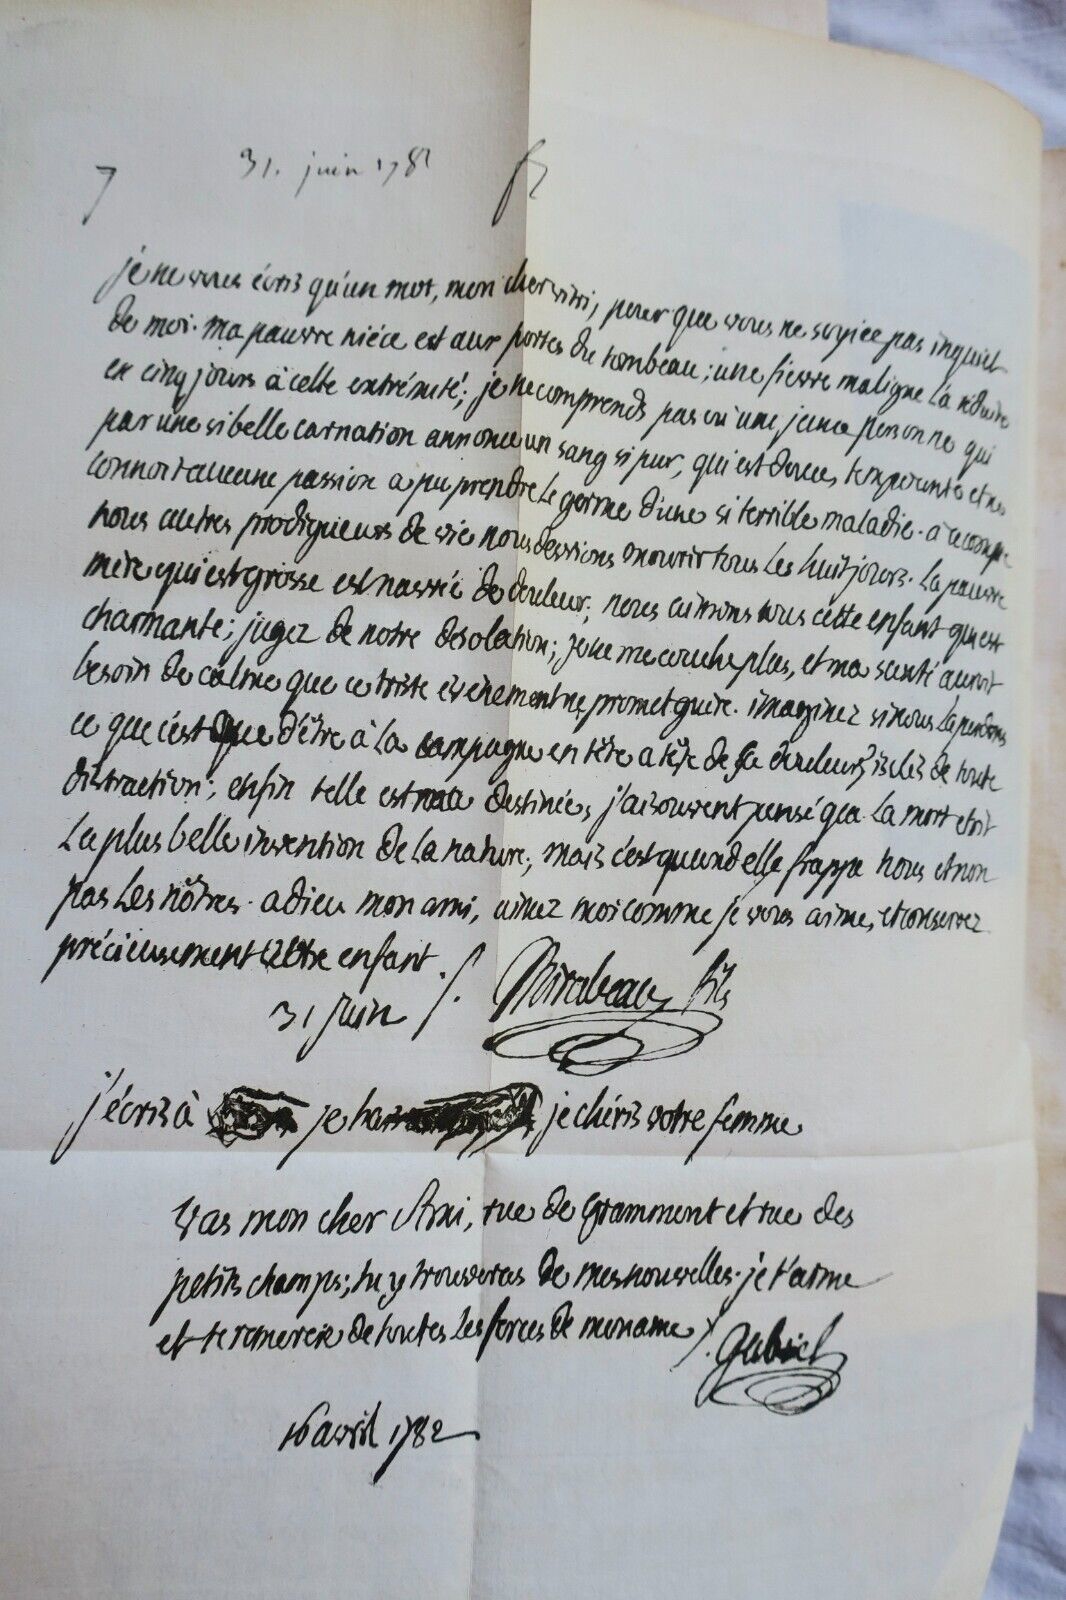 31. juin 1782
je ne vous écris qu'un mot, mon cher vitri, pour que vous ne soyiez pas inquiet
de moi. ma pauvre niéce est aux portes du tombeau; une fievre maligne l'a réduite
en cinq jours à cette extrémité; je ne comprends pas qu'une jeune personne qui
par une si belle carnation annonce un sang si pur, qui est douce, tempérante et ne
connoit aucune passion a pu prendre le germe d'une si terrible maladie. à ce compte
nous autres prodigueurs de vie nous devrions mourir tous les huit jours. la pauvre
mère qui est grosse est navrée de douleur; nous aimons tous cette enfant qui est
charmante; jugez de notre désolation; je ne me couche plus, et ma santé auroit
besoin de calme que ce triste évènement ne promet guère. imaginez si nous la perdons
ce que c'est que d'être à la campagne en tête a tête de sa douleur, isolés de toute
distraction; enfin telle est ma destinée, j'ai souvent pensé que la mort etoit
la plus belle invention de la nature; mais c'est quand elle frappe nous et non
pas les nôtres. adieu mon ami, aimez moi comme je vous aime, et conservez
précieusement votre enfant.
31 juin Mirabeau fils
j'écris à je je chéris votre femme
Vas mon cher Ami, rue de Grammont et rue des
petits champs; tu y trouveras de mes nouvelles. je t'aime
et te remercie de toutes les forces de mon ame Gabriel
16 avril 1782